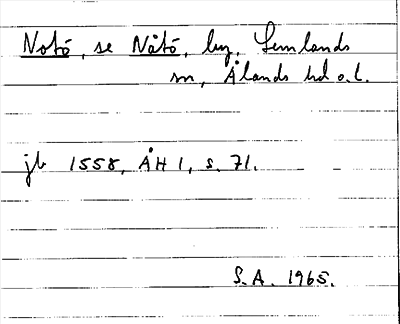 Notö, se Nåtö, by, Lemlands
sn, Ålands hd o.l.
jb 1558, ÅH 1, s. 71.
S.A. 1965.